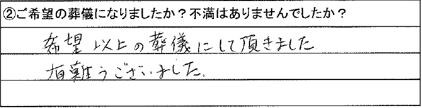 ②ご希望の葬儀になりましたか？不満はありませんでしたか？
希望以上の葬儀にして頂きました
有難うございました.